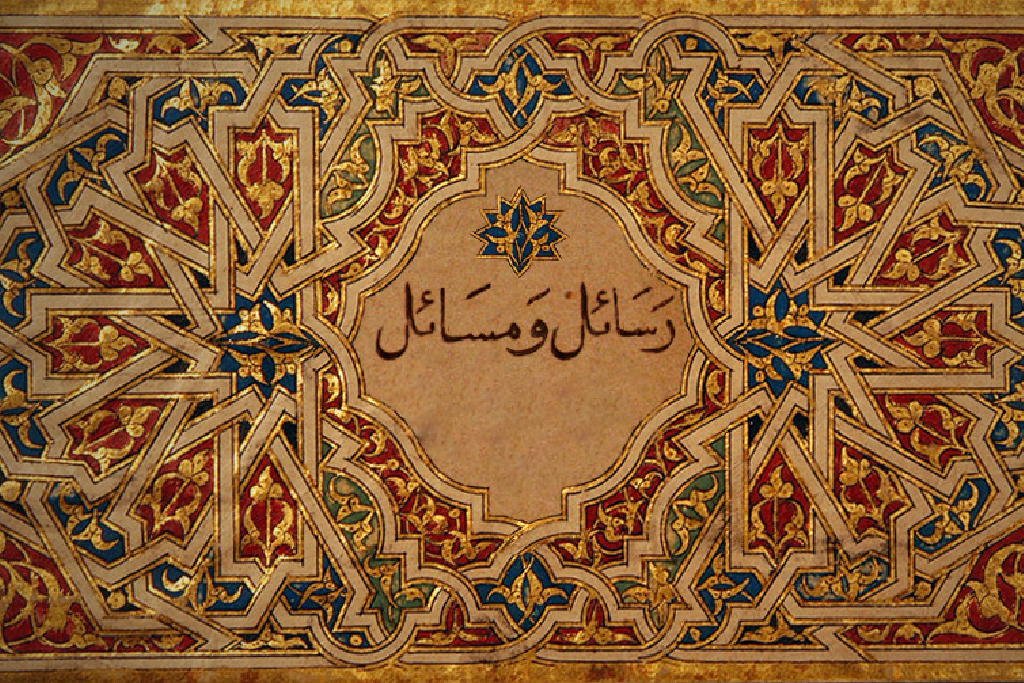 رَسَائل وَمسَائل